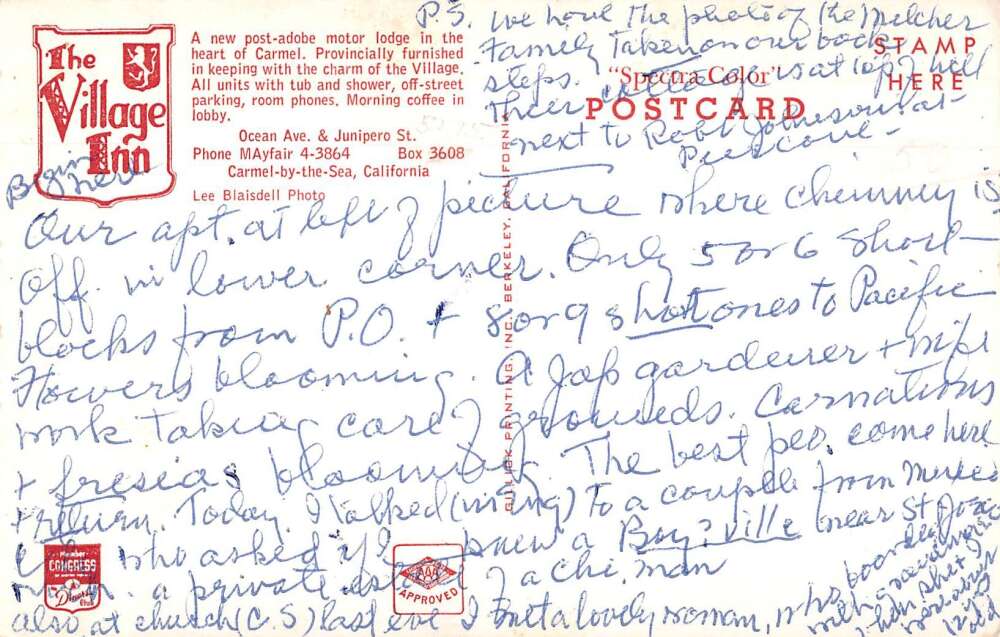 The
Village
Inn
A new post-adobe motor lodge in the
heart of Carmel. Provincially furnished
in keeping with the charm of the Village.
All units with tub and shower, off-street
parking, room phones. Morning coffee in
lobby.
Ocean Ave. & Junipero St.
Phone MAyfair 4-3864 Box 3608
Carmel-by-the-Sea, California
Lee Blaisdell Photo
STAMP
HERE
"Spectra Color"
POSTCARD
PRINTING, INC. BERKELEY, CALIFORNIA
P.S. we have the photo of the Melcher
Family taken on our back
steps.
Their cottage is at top of hill
next to Robt Johnson at
Begin
here
Our apt. at left of picture where chimney is
off. in lower corner. Only 5 or 6 short
blocks from P.O. + 8 or 9 short ones to Pacific
Flowers blooming. A Jap gardener + wife
work taking care of grounds. Carnations
+ fresias blooming. The best peo. come here
+ return. Today I talked (visiting) to a couple from Mexico
who asked if I knew a Boys ville near St Joseph
a private estate of a Chi. man
also at church (C.S) last eve I met a lovely woman, who boards
Member
CONGRESS
Diners'
Club
AAA
APPROVED